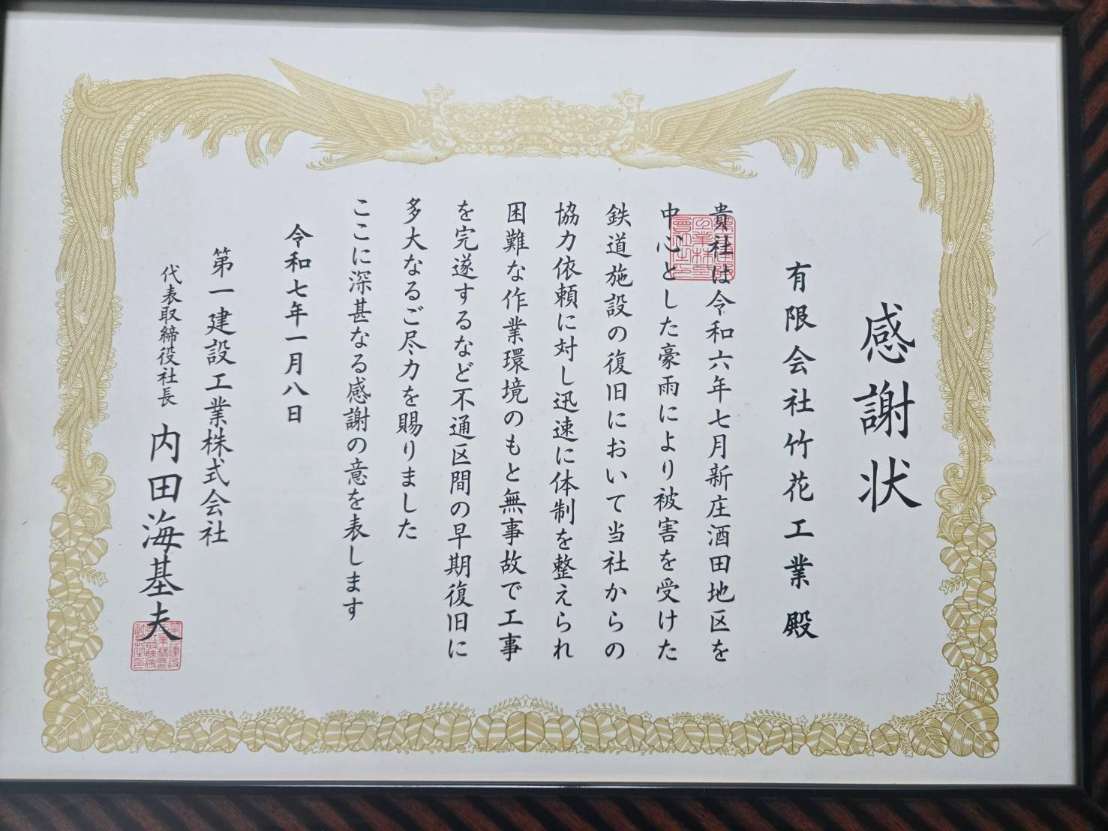 感謝状
有限会社竹花工業殿
貴社は令和六年七月新庄酒田地区を
中心とした豪雨により被害を受けた
鉄道施設の復旧において当社からの
協力依頼に対し迅速に体制を整えられ
困難な作業環境のもと無事故で工事
を完遂するなど不通区間の早期復旧に
多大なるご尽力を賜りました
ここに深甚なる感謝の意を表します
令和七年一月八日
第一建設工業株式会社
代表取締役社長 内田海基夫